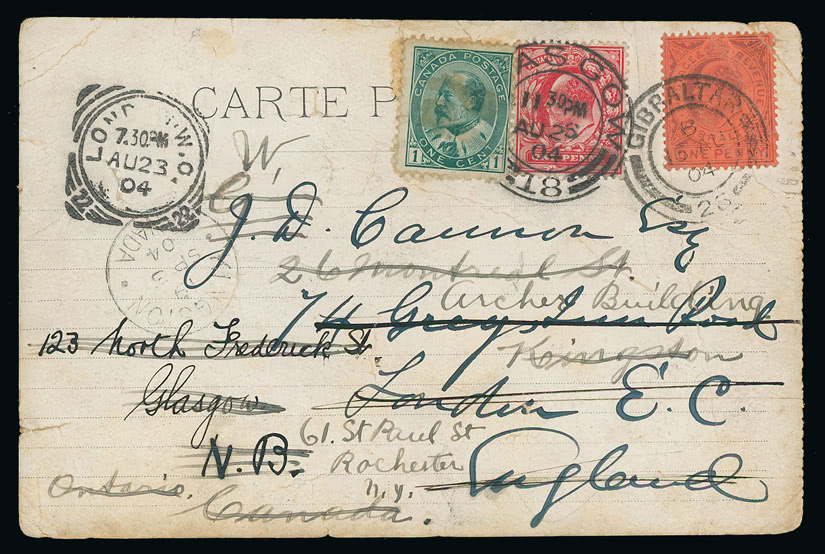 CARTE P
CANADA POSTAGE
1 ONE CENT 1
GLASGOW
11.30PM
AU 26
04
18
GIBRALTAR
04
26
LONDON W.C.
7.30PM
AU 23
04
22 22
KINGSTON
CANADA
04
W.
C.
J. D. Cannon Esq
26 Montreal St.
Archer Building
74 Greys Inn Road
123 North Frederick St
Kingston
Glasgow
London E.C.
61. St Paul St
N.B.
Rochester
England
n.y.
Ontario.
Canada.